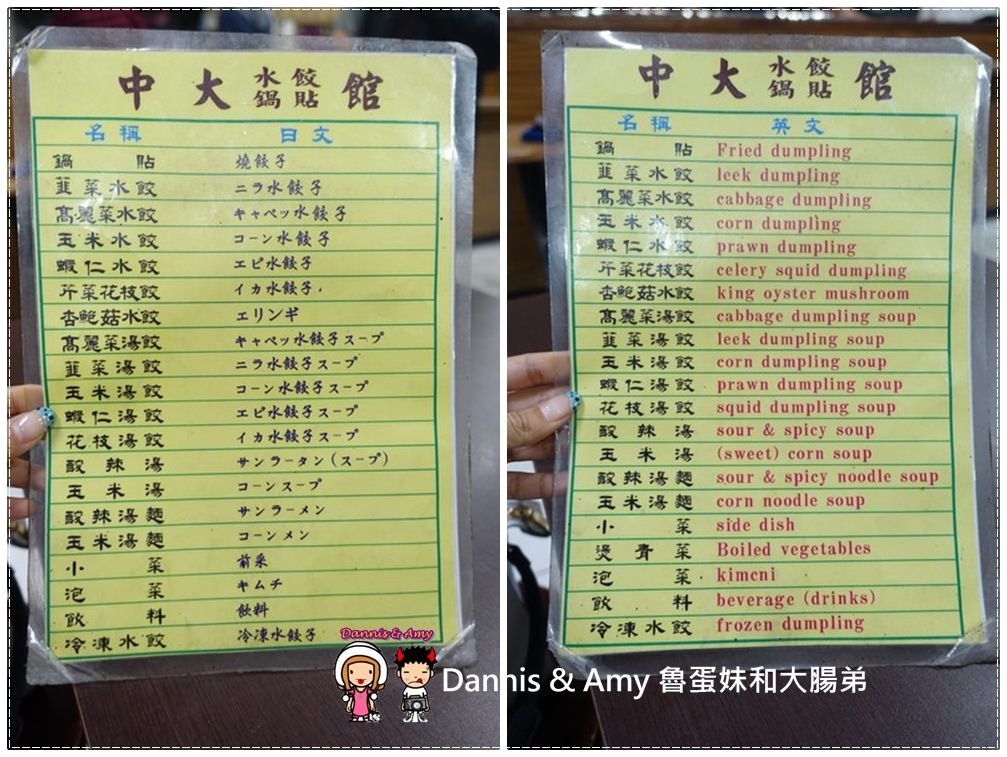 中大水餃鍋貼館
名稱 日文
鍋貼 燒餃子
韮菜水餃 ニラ水餃子
高麗菜水餃 キャベッ水餃子
玉米水餃 コーン水餃子
蝦仁水餃 エビ水餃子
芹菜花枝餃 イカ水餃子
杏鮑菇水餃 エリンギ
高麗菜湯餃 キャベッ水餃子スープ
韮菜湯餃 ニラ水餃子スープ
玉米湯餃 コーン水餃子スープ
蝦仁湯餃 エビ水餃子スープ
花枝湯餃 イカ水餃子スープ
酸辣湯 サンラータン(スープ)
玉米湯 コーンスープ
酸辣湯麵 サンラーメン
玉米湯麵 コーンメン
小菜 前菜
泡菜 キムチ
飲料 飲料
冷凍水餃 冷凍水餃子
中大水餃鍋貼館
名稱 英文
鍋貼 Fried dumpling
韮菜水餃 leek dumpling
高麗菜水餃 cabbage dumpling
玉米水餃 corn dumpling
蝦仁水餃 prawn dumpling
芹菜花枝餃 celery squid dumpling
杏鮑菇水餃 king oyster mushroom
高麗菜湯餃 cabbage dumpling soup
韮菜湯餃 leek dumpling soup
玉米湯餃 corn dumpling soup
蝦仁湯餃 prawn dumpling soup
花枝湯餃 squid dumpling soup
酸辣湯 sour & spicy soup
玉米湯 (sweet) corn soup
酸辣湯麵 sour & spicy noodle soup
玉米湯麵 corn noodle soup
小菜 side dish
燙青菜 Boiled vegetables
泡菜 kimcni
飲料 beverage (drinks)
冷凍水餃 frozen dumpling
Dannis & Amy
Dannis & Amy 魯蛋妹和大腸弟